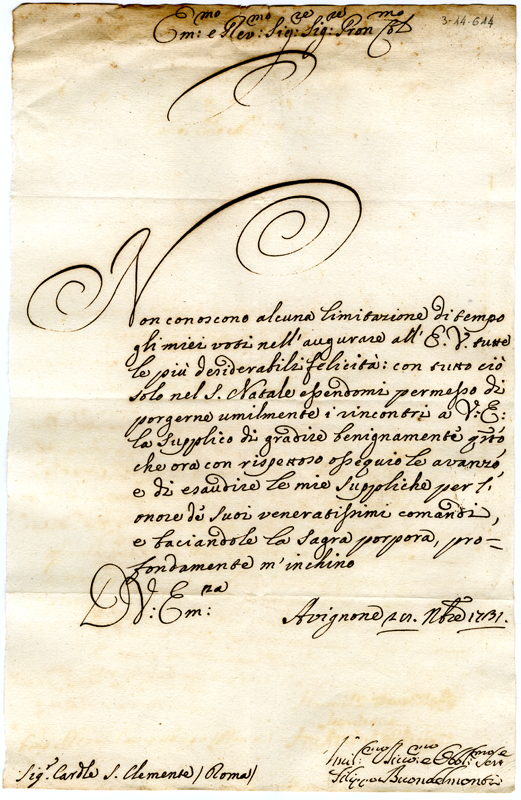 Em:mo e Rev:mo Sig:re Sig:re Pron Col:mo
3-14-614
Non conoscono alcuna limitazione di tempo
gli miei voti nell'augurare all'E. V. tutte
le più desiderabili felicità: con tutto ciò
solo nel S. Natale essendomi permesso di
porgerne umilmente i rincontri a V: E:
la supplico di gradire benignamente q̃sto
che ora con rispettoso ossequio le avanzo
e di esaudire le mie suppliche per l'
onore dè suoi veneratissimi comandi,
e baciandole la sagra porpora, pro=
fondamente m'inchino
D V: Em:na
Avignone Nbre 1731.
Umil:mo e Obbl:mo Serv
Sig.r Cardle S. Clemente / Roma /
Filippo Buondelmonti